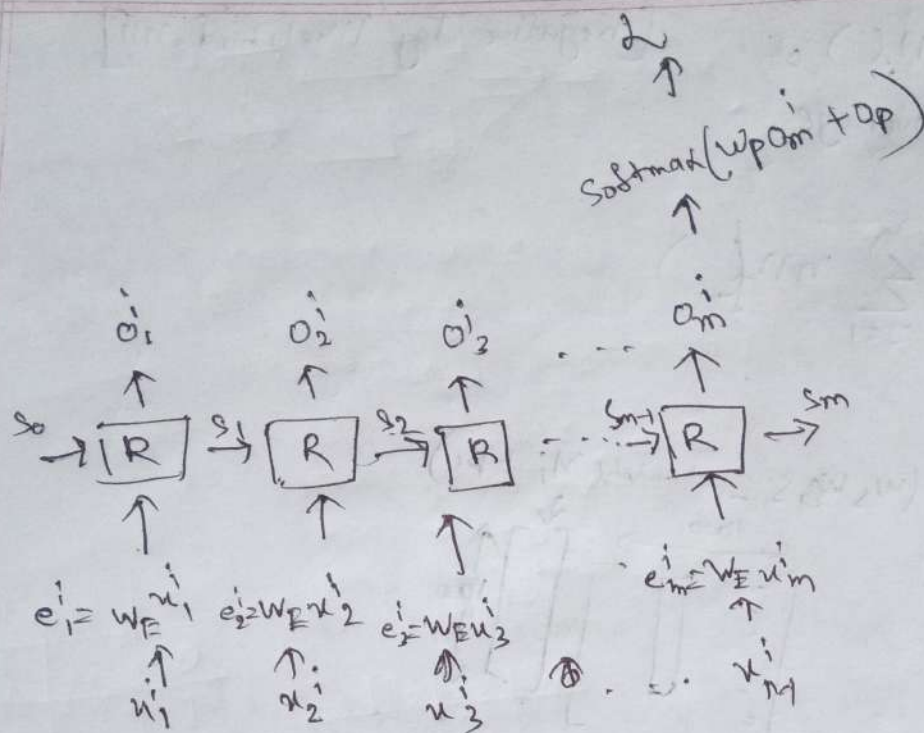 L
softmax(WpOᵢm + Op)
Oⁱ₁ Oⁱ₂ Oⁱ₃ .... Oⁱm
S₀ R S₁ R S₂ R ..... Sm-1 R Sm
eⁱ₁ = WE xⁱ₁ eⁱ₂ = WE xⁱ₂ eⁱ₂ = WE xⁱ₃ eⁱm = WE xⁱm
xⁱ₁ xⁱ₂ xⁱ₃ . . . . xⁱn-1